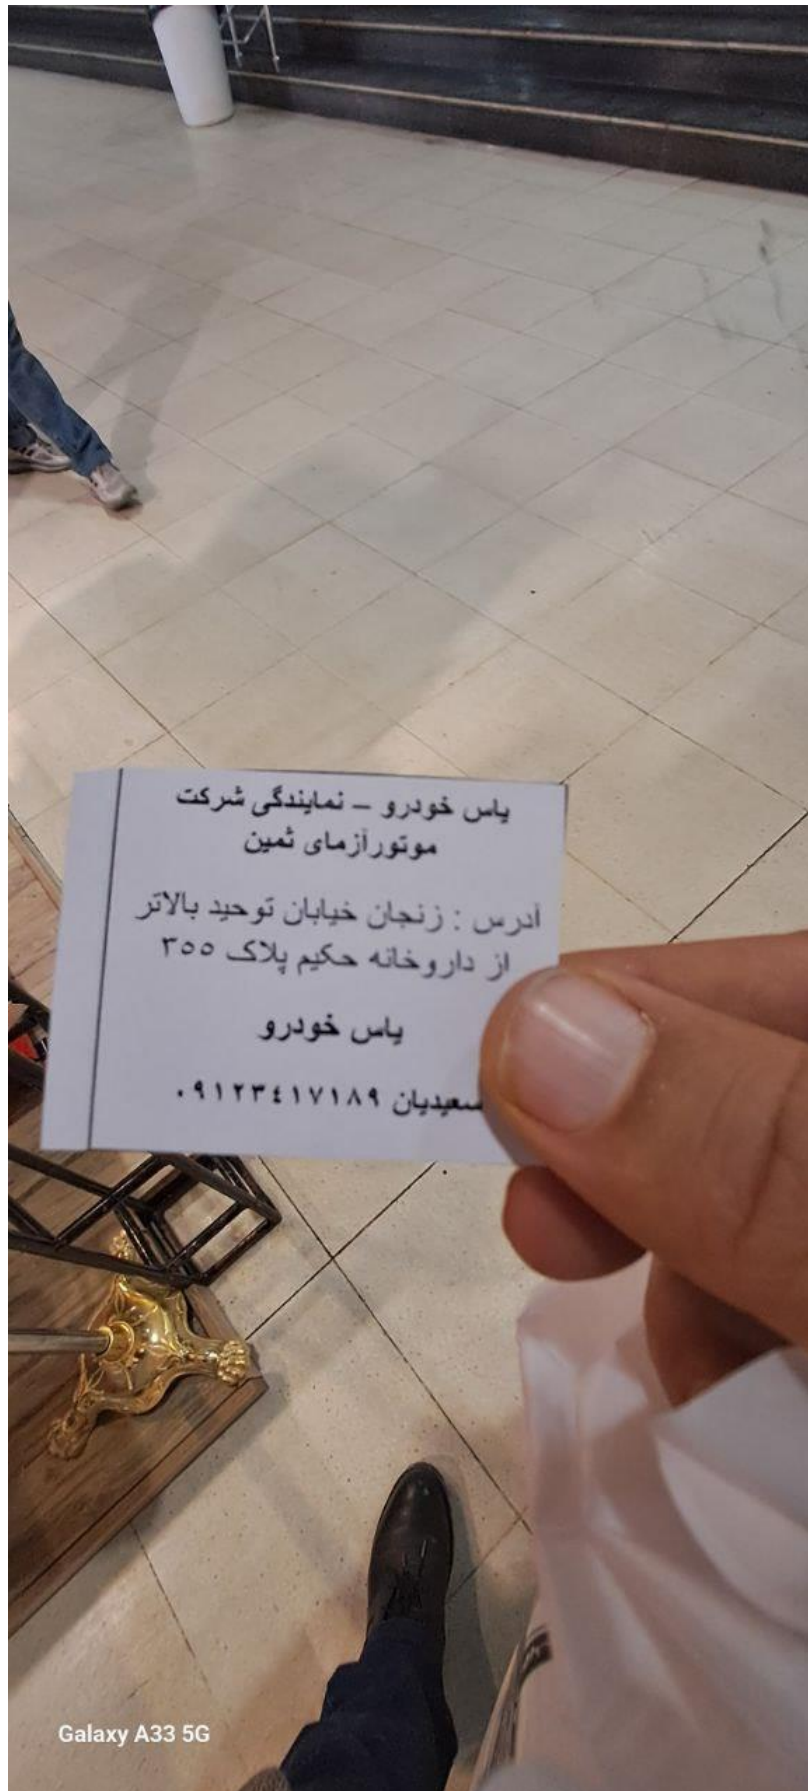 یاس خودرو – نمایندگی شرکت
موتورآزمای ثمین
آدرس : زنجان خیابان توحید بالاتر
از داروخانه حکیم پلاک ۳۵۵
یاس خودرو
سعیدیان ۰۹۱۲۳٤۱۷۱۸۹
Galaxy A33 5G